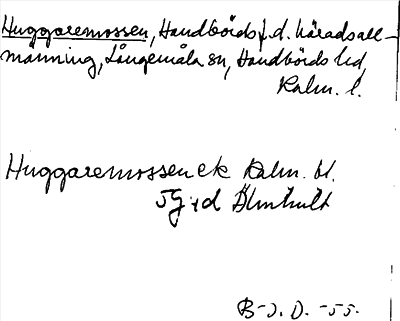 Huggaremossen, Handbörds f.d. häradsall-
männing, Långemåla sn, Handbörds hd,
Kalm. l.
Huggaremossen ek Kalm. bl.
5G d Älmhult
B-J. D. -55.